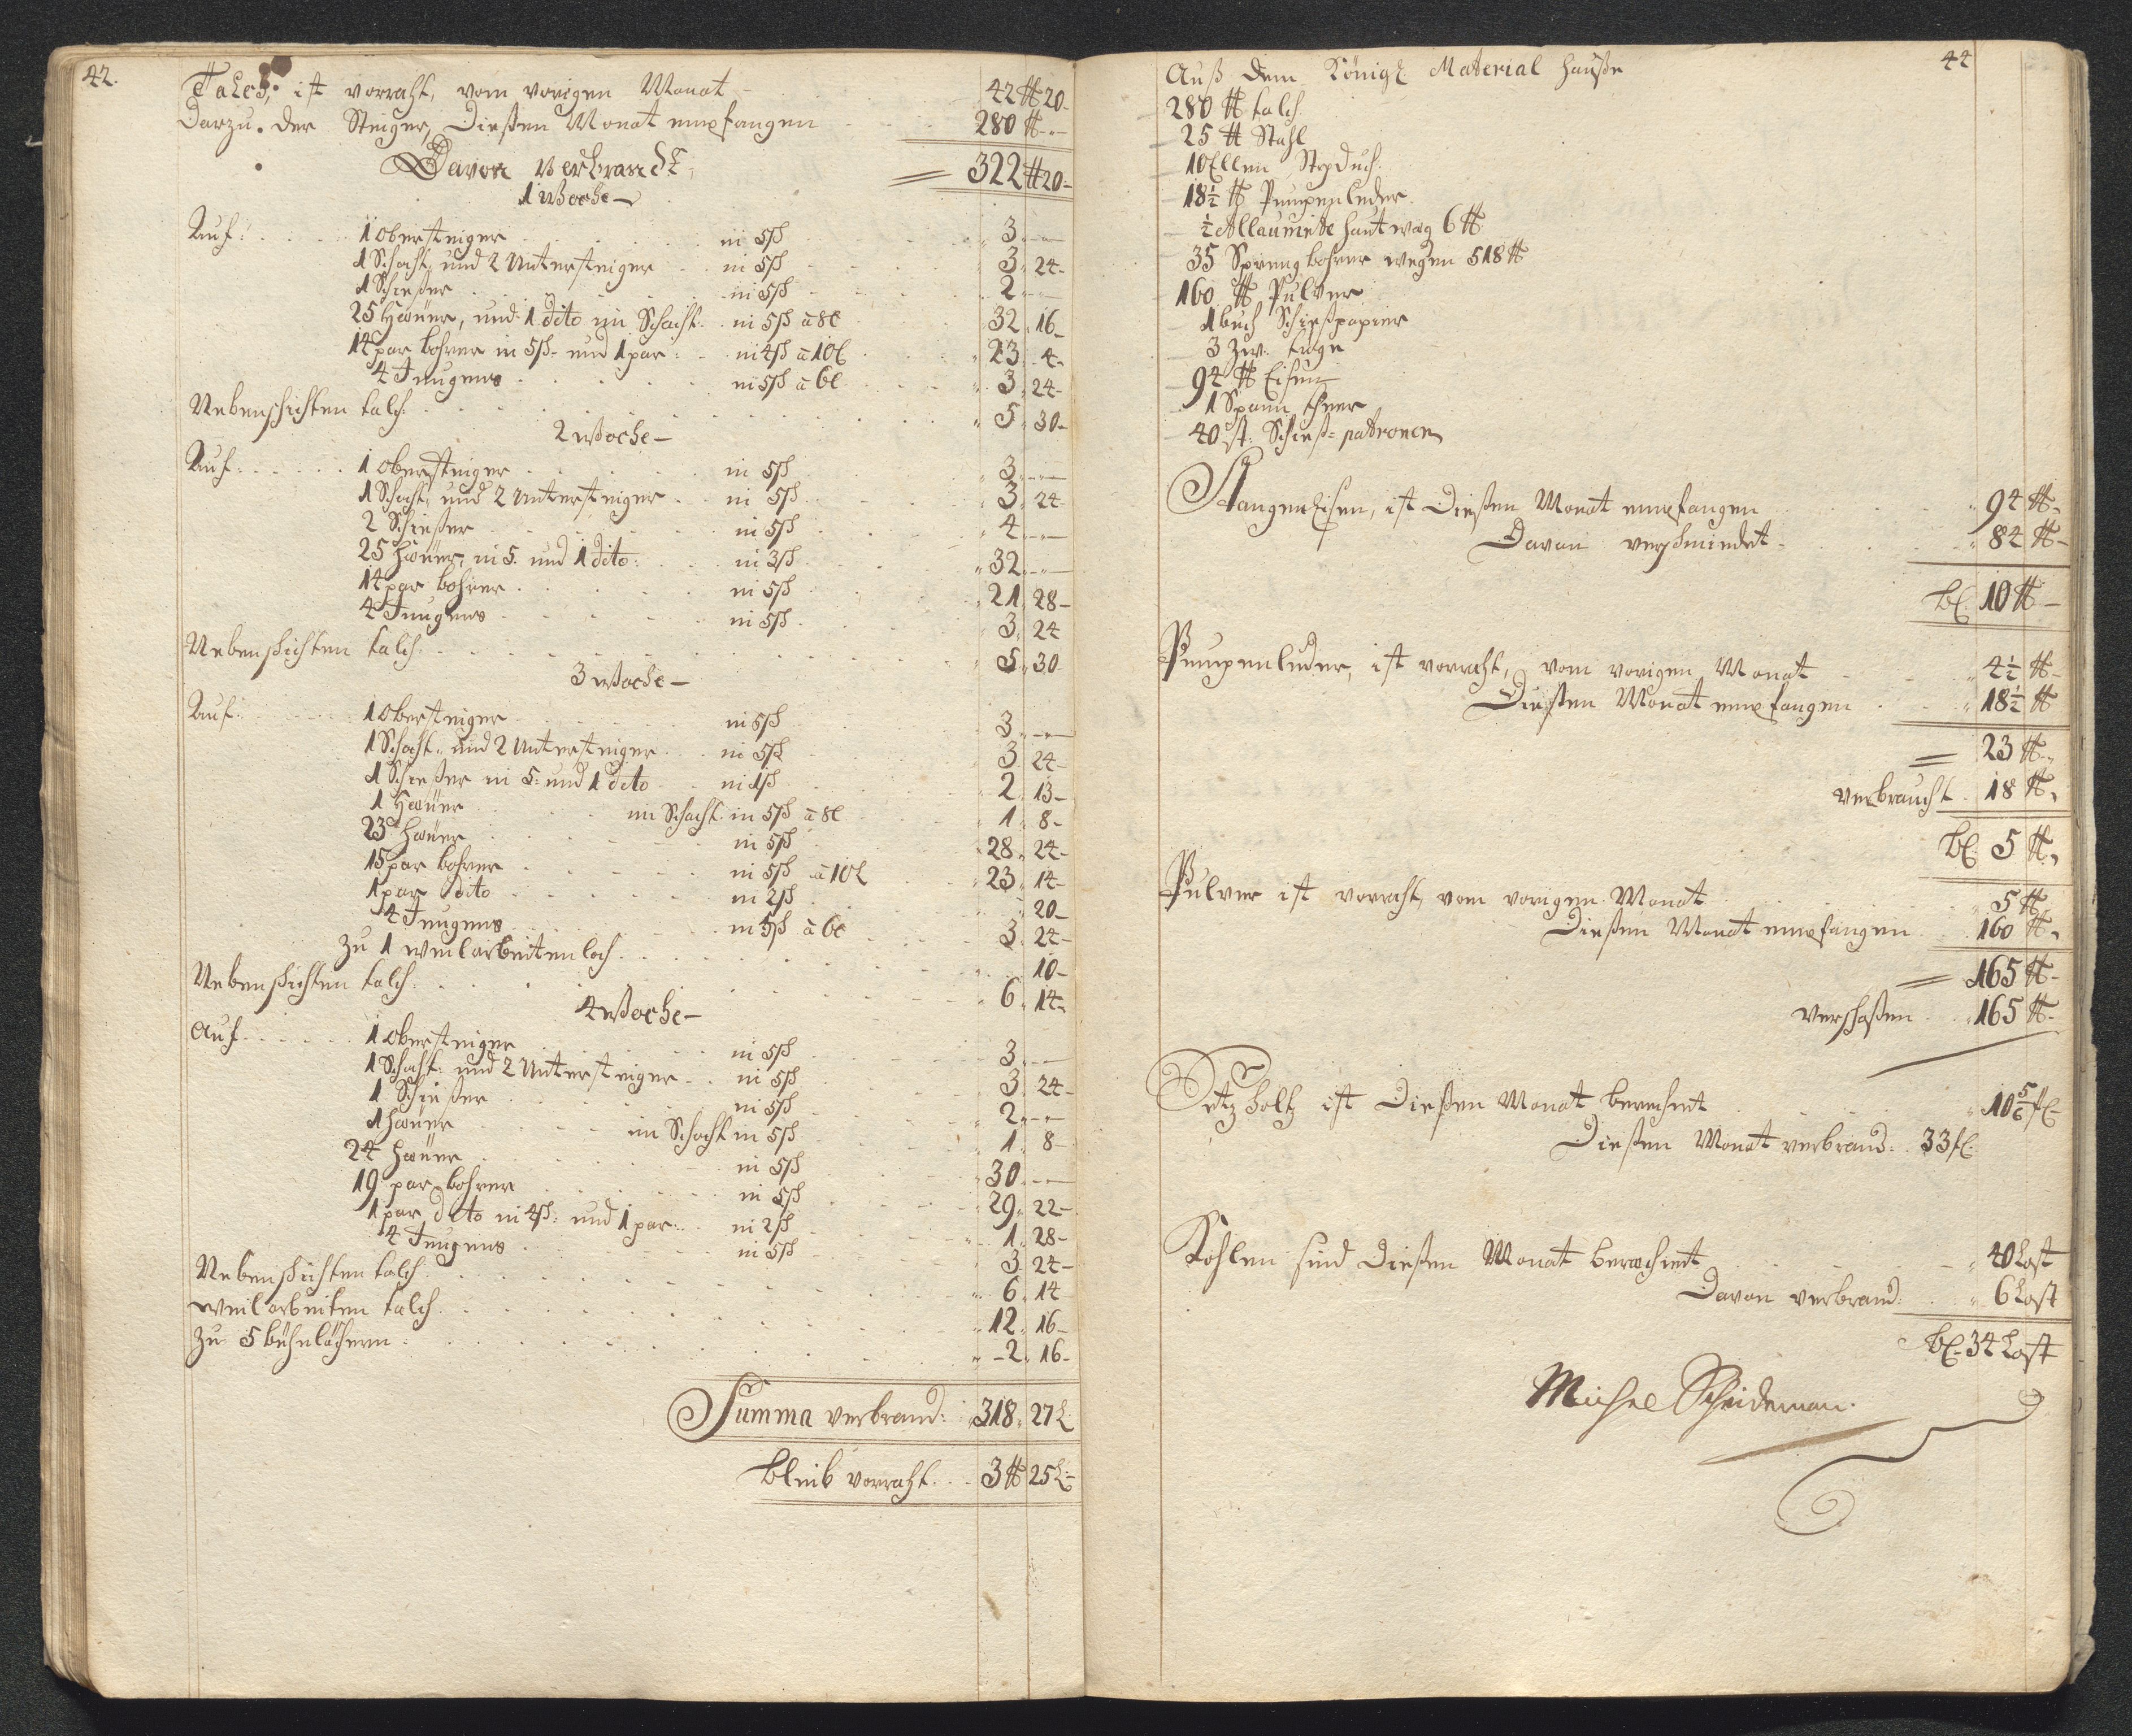 42.
Talch, ist vorraht, vom vorigen Monat - 42 ℔ 20-
Darzu. der Steiger, Dießen Monat empfangen 280 ℔ -"-
Davon verbrandt, = 322 ℔ 20-
1 Woche-
Auf: 1 Obersteiger in 5ß 3 "-
1 Schacht und 2 Untersteiger in 5ß 3. 24-
1 Schießer in 5ß 2 "-
25 Häuer, und 1 dito im Schacht in 5ß a 8l 32. 16-
14 par bohrer in 5ß- und 1 par: in 4ß a 10l 23. 4-
4 Jungens in 5ß a 6l 3. 24-
Nebenschichten talch. 5. 30-
2 Woche-
Auf: 1 Obersteiger in 5ß 3 "-
1 Schacht und 2 Untersteiger in 5ß 3. 24
2 Schießer in 5ß 4 "-
25 Häuer, in 5. und 1 dito: in 3ß 32 "-
14 par bohrer in 5ß 21. 28-
4 Jungens in 5ß 3. 24
Nebenschichten talch. 5. 30
3 Woche-
Auf: 1 Obersteiger in 5ß 3 "-
1 Schacht. und 2 Untersteiger in 5ß 3. 24-
1 Schießer in 5: und 1 dito in 1ß 2. 13-
1 Häuer im Schacht. in 5ß a 8l 1. 8-
23 Häuer in 5ß 28. 24-
15 par bohrer in 5ß a 10l 23. 14-
1 par dito in 2ß 20-
4 Jungens in 5ß a 6l 3. 24-
Zu 1 weilarbeiten loch. 10-
Nebenschichten talch. 6. 14-
4 Woche-
Auf 1 Obersteiger in 5ß 3 "-
1 Schacht: und 2 Untersteiger in 5ß 3. 24-
1 Schießer in 5ß 2 "-
1 Häuer im Schacht in 5ß 1. 8-
24 Häuer in 5ß 30 "-
19 par bohrer in 5ß 29. 22-
1 par dito in 4ß: und 1 par: in 2ß 1. 28-
4 Jungens in 5ß 3. 24-
Nebenschichten talch. 6. 14
weilarbeiten talch. 12. 16-
Zu 5 bühnlöchern 2. 16-
Summa verbrand: 318. 27 L.
bleib vorraht. 3 ℔ 25 L-
44
Auß dem Königl Material Hauße
280 ℔ talch
25 ℔ Stahl
10 Ellen
18½ ℔ Pumpenleder.
½ Allaunirte haut wag 6 ℔
35 Sprengbohrer wegen 518 ℔
160 ℔ Pulver
1 buch Schießpapier
3 Zw:
94 ℔ Eisen
1 Spann theer
40 st: Schieß-patronen
Stangen Eisen, ist Dießen Monat empfangen 94 ℔-
Davon verschmiedet 84 ℔-
bl. 10 ℔-
Pumpenleder, ist vorraht, vom vorigen Monat 4½ ℔-
Dießen Monat empfangen 18½ ℔
= 23 ℔-
verbraucht. 18 ℔-
bl. 5 ℔-
Pulver ist vorraht, vom vorigen Monat 5 ℔
Dießen Monat empfangen 160 ℔-
= 165 ℔-
verschoßen 165 ℔-
Setz holtz ist Dießen Monat berechnet 10 5/6 fl-
Dießen Monat verbrand: 33 fl.
Kohlen sind Dießen Monat berechnet 40 Last
Davon verbrand: 6 Last
bl. 34 Last
Michel Scheideman.